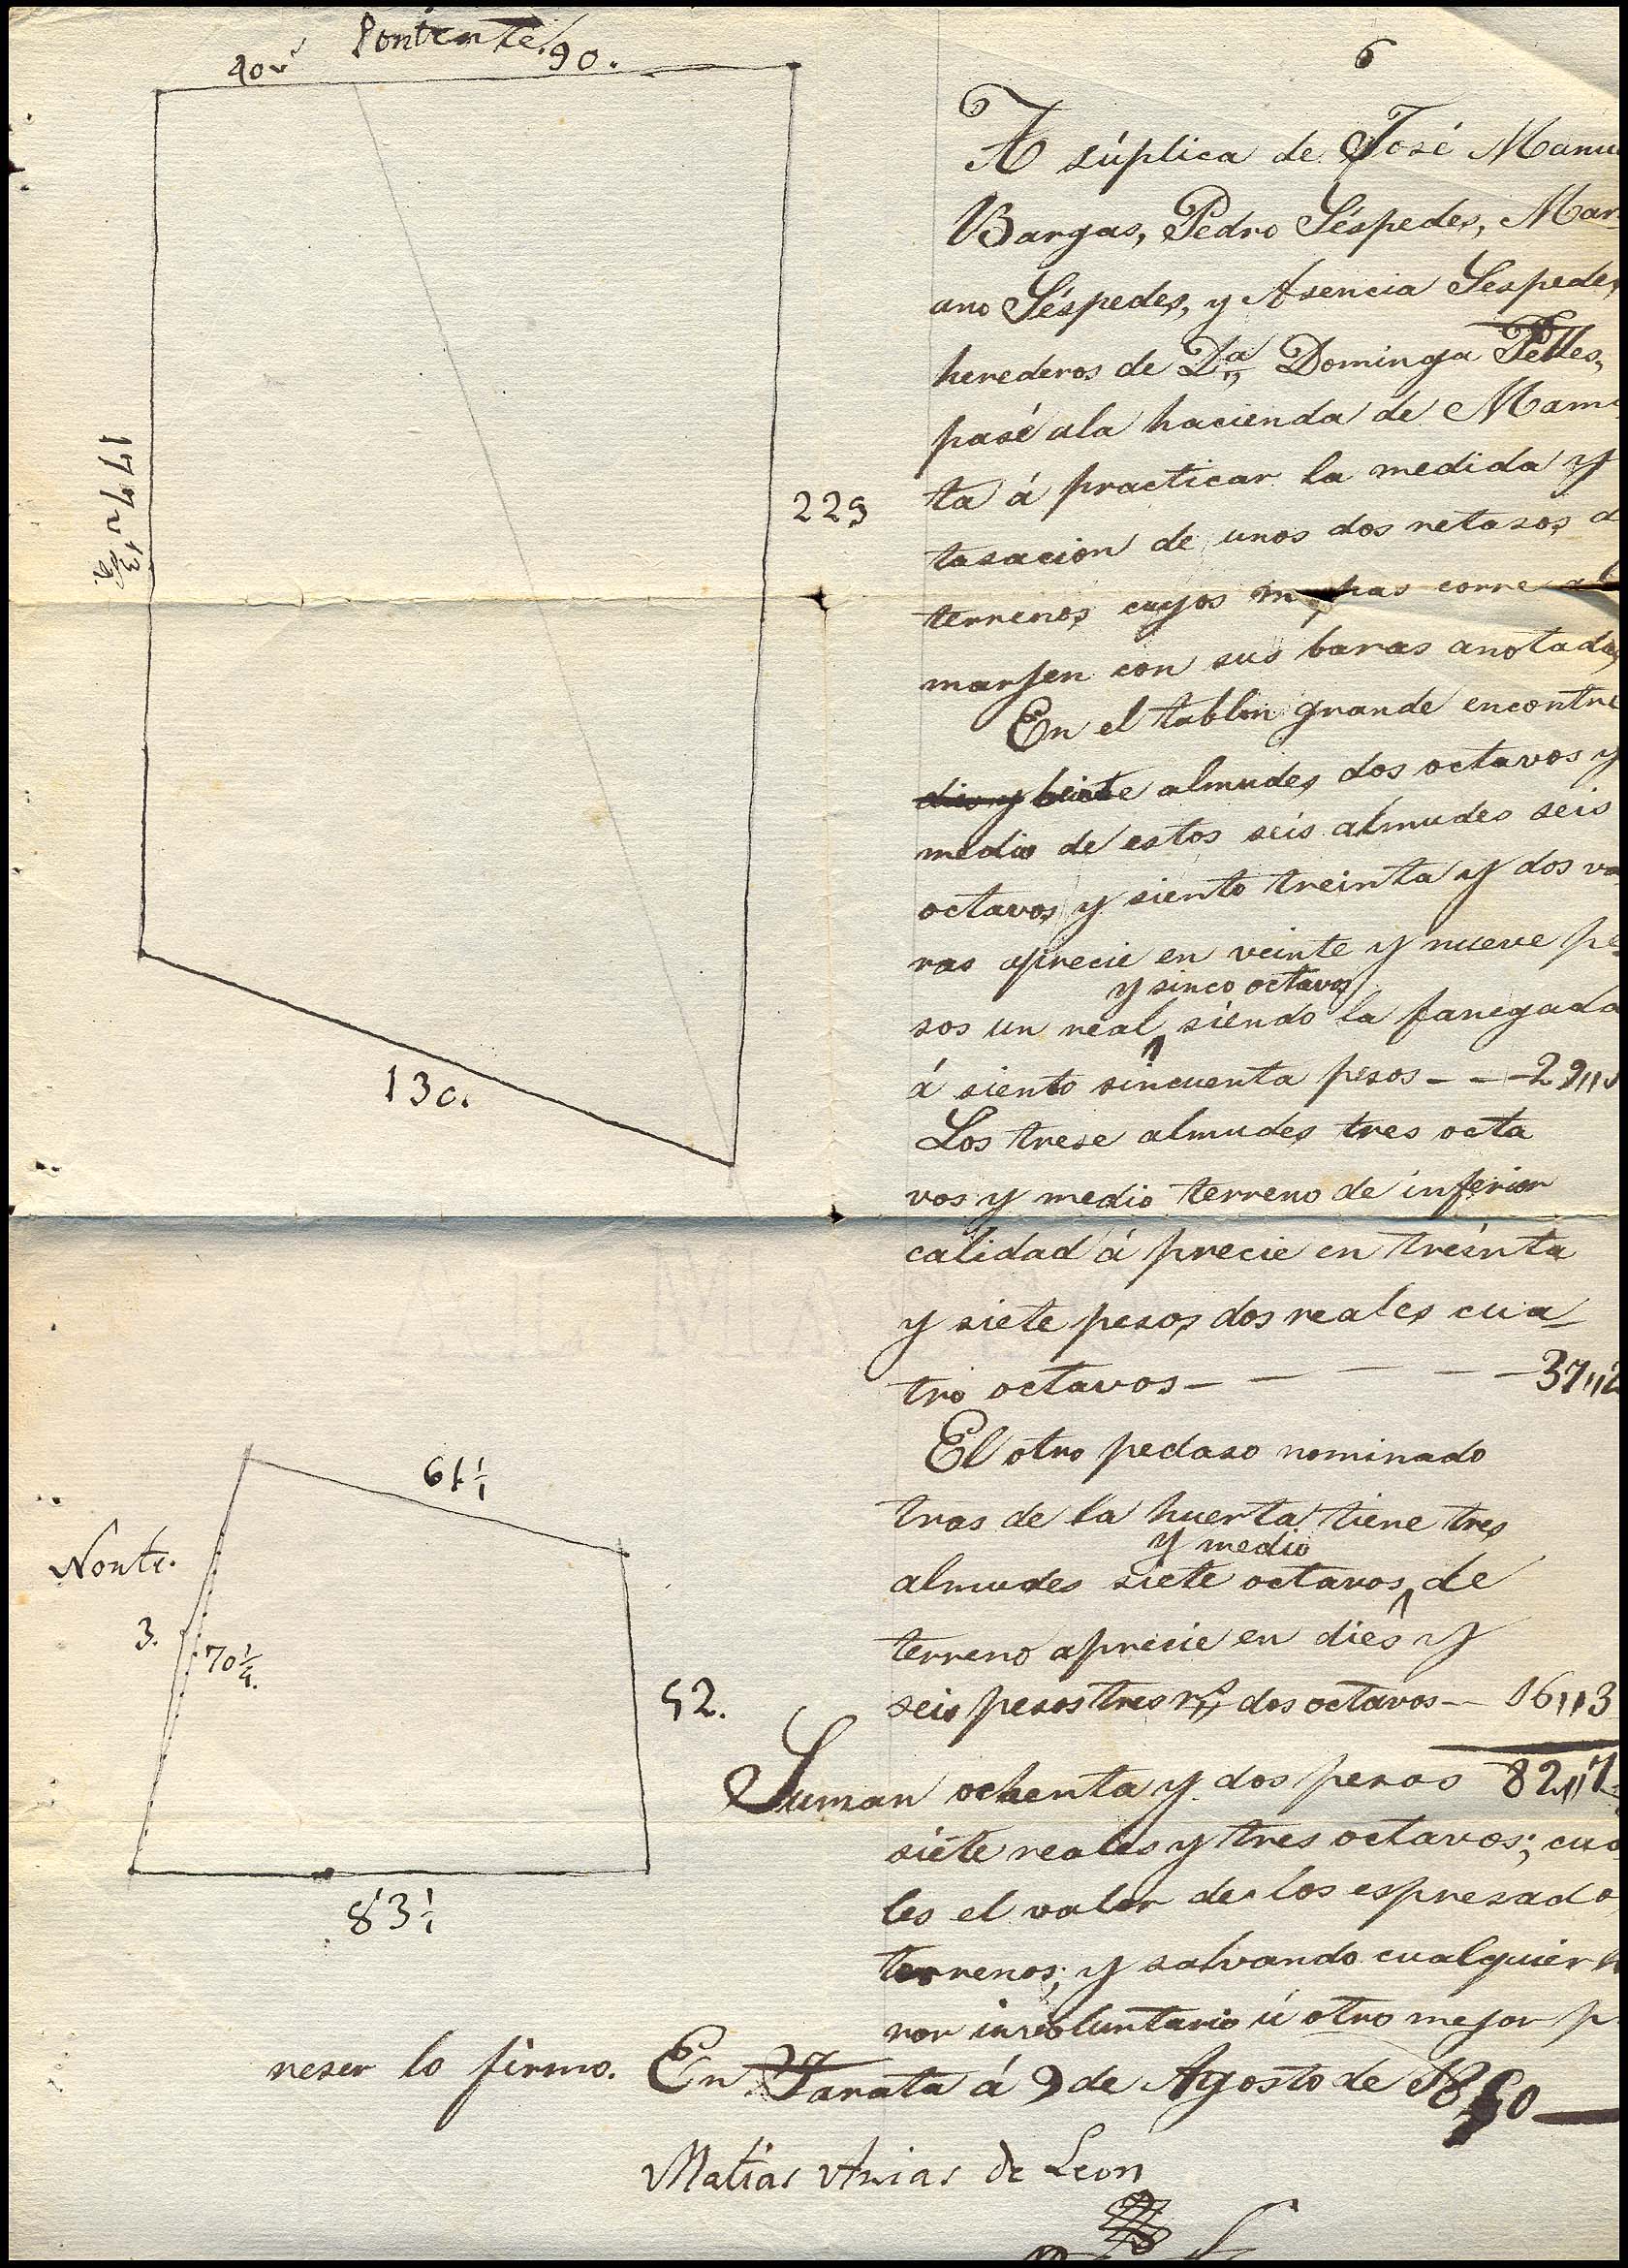 40v Poniente. 90.
177v
229
130.
Norte.
61
3.
70 1/4.
52.
83
6
A súplica de José Manu
Bargas, Pedro Séspedes, Mari
ano Séspedes, y Asencia Sespedes
herederos de Da. Dominga Telles,
pasé ala hacienda de Mam
ta á practicar la medida y
tasacion de unos dos retasos d
terrenos cuyos mapas corre al
marjen con sus baras anotadas
En el tablon grande encontre
almudes dos octavos y
medio de estos seis almudes seis
octavos y siento treinta y dos va
ras aprecie en veinte y nueve pe
y sinco octavos
sos un real siendo la fanegada
á siento sincuenta pesos - - - 29,,
Los trese almudes tres octa
vos y medio terreno de inferior
calidad á precie en treinta
y siete pesos dos reales cua-
tro octavos - - - - 37,,2
El otro pedaso nominado
tras de la huerta tiene tres
y medio
almudes siete octavos de
terreno aprecie en dies y
seis pesos tres rs. dos octavos - 16,,3
Suman ochenta y dos pesos 82,,7
siete reales y tres octavos; cua
les el valor de los espresado
terrenos; y salvando cualquier
ror involuntario ú otro mejor p
reser lo firmo. En Tarata á 9 de Agosto de 1850
Matias Arias de Leon